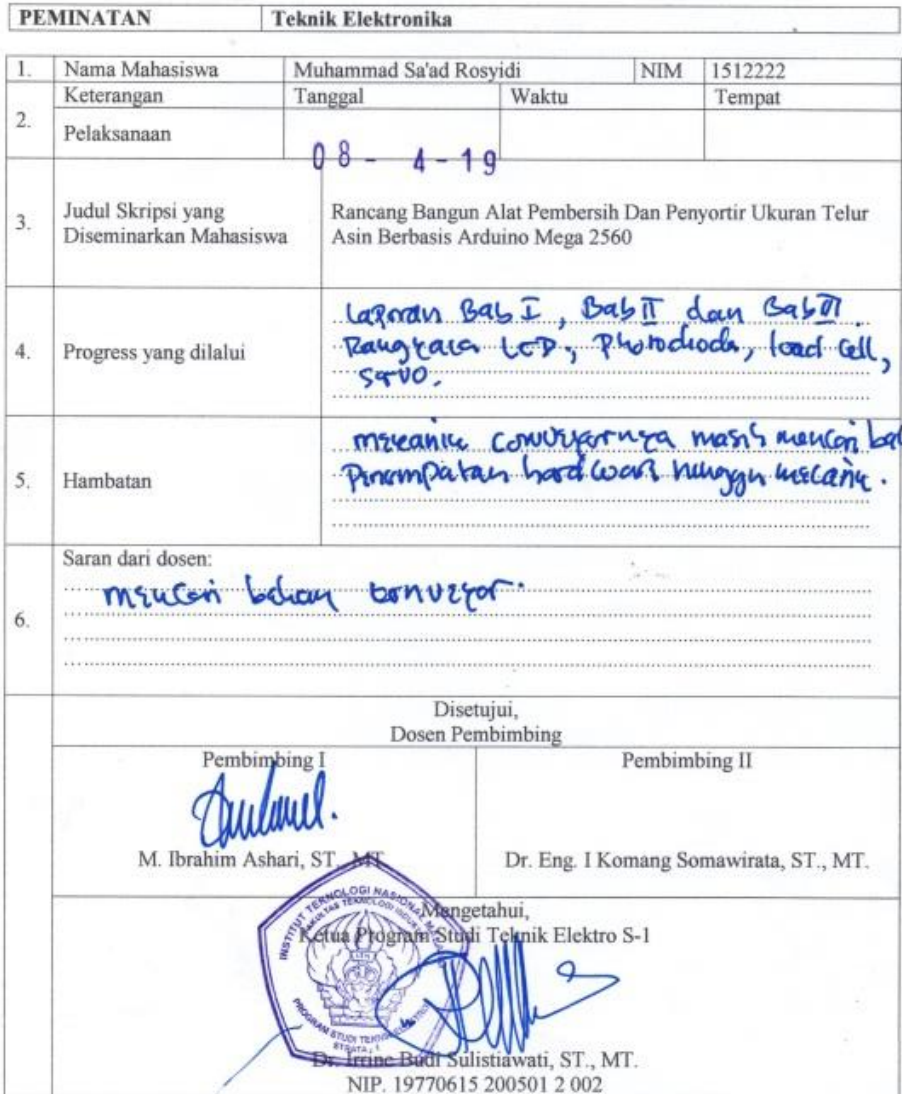 PEMINATAN Teknik Elektronika
1. Nama Mahasiswa Muhammad Sa'ad Rosyidi NIM 1512222
Keterangan Tanggal Waktu Tempat
2. Pelaksanaan
08 - 4 - 19
3. Judul Skripsi yang Diseminarkan Mahasiswa
Rancang Bangun Alat Pembersih Dan Penyortir Ukuran Telur
Asin Berbasis Arduino Mega 2560
4. Progress yang dilalui
Laporan Bab I, Bab II dan Bab III.
LCD, Photodioda, load Cell,
servo.
5. Hambatan
mekanik masih mencari
hardware mekanik.
6. Saran dari dosen:
mencari bahan konveyor.
Disetujui,
Dosen Pembimbing
Pembimbing I Pembimbing II
M. Ibrahim Ashari, ST., MT. Dr. Eng. I Komang Somawirata, ST., MT.
Mengetahui,
Ketua Program Studi Teknik Elektro S-1
INSTITUT TEKNOLOGI NASIONAL
FAKULTAS TEKNOLOGI INDUSTRI
PROGRAM STUDI TEKNIK
STRATA 1
Dr. Irrine Budi Sulistiawati, ST., MT.
NIP. 19770615 200501 2 002